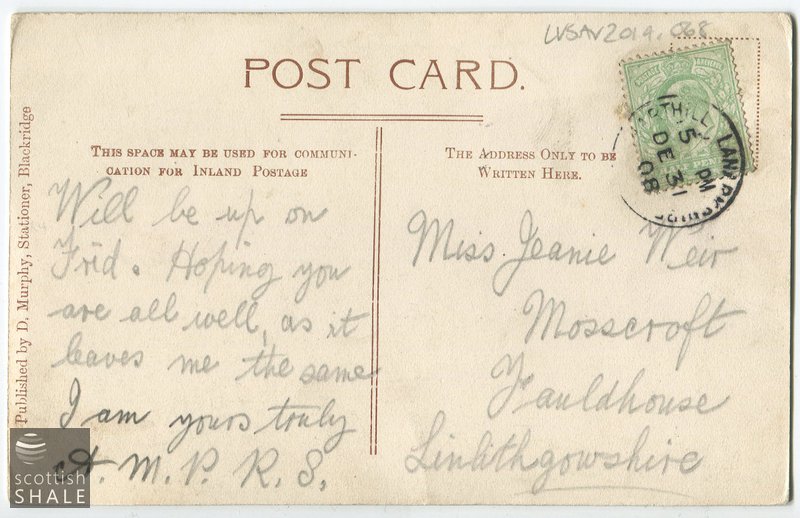 LVSAV2019.068
POST CARD.
THIS SPACE MAY BE USED FOR COMMUNI-
CATION FOR INLAND POSTAGE
THE ADDRESS ONLY TO BE
WRITTEN HERE.
Will be up on
Frid. Hoping you
are all well, as it
leaves me the same
I am yours truly
A. M. P. R. S.
Miss Jeanie Weir
Mosscroft
Fauldhouse
Linlithgowshire
Published by D. Murphy, Stationer, Blackridge
5 PM
DE 31
08
scottish
SHALE